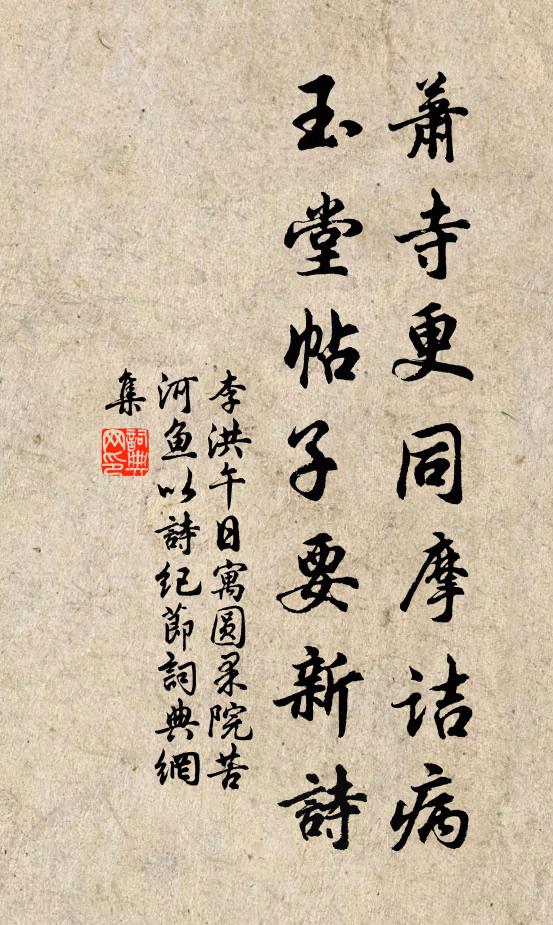 蕭寺更同摩詰病
玉堂帖子要新詩
李洪午日寓圓果院苦
河魚以詩紀節詞典網
集
詞典
网印